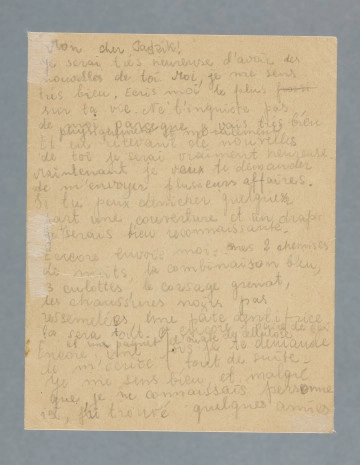 Mon cher Tadzik!
Je serai très heureuse d'avoir des
nouvelles de toi. Moi, je me sens
très bien, écris moi le plus
sur ta vie. Ne t'inquiète pas
de moi parceque je vais très bien
physiquement et moralement
Et en recevant de nouvelles
de toi je serai vraiment heureuse.
Maintenant je veux te demander
de m'envoyer plusieurs affaires.
Si tu peux dénicher quelque
part une couverture et un drap
je serais bien reconnaissante.
Encore envoie moi mes 2 chemises
de nuits, la combinaison bleu,
3 culottes, le corsage grenat,
des chaussures noirs pas
ressemelées une pâte dentifrice
Ça sera tout. Et encore
et un paquet
Encore une fois je te demande
de m'écrire tout de suite.
Je me sens bien et malgré
que je ne connaissais personne
ici, j'ai trouvé quelques amies